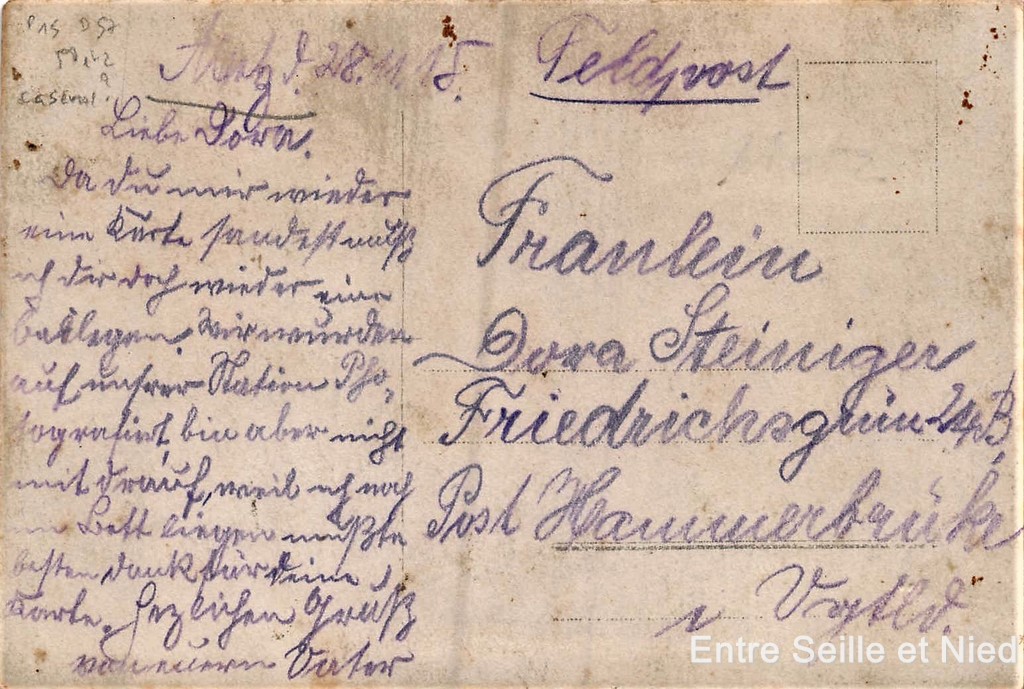 Metz d. 28.11.15.
Feldpost
Liebe Dora.
Da du mir wieder
eine Karte sandest muß
ich dir doch wieder eine
Wir wurden
auf unsrer Station Pho,
tografirt, bin aber nicht
mit drauf, weil ich noch
im Bett liegen mußte
besten Dank für deine
Karte. Hezlichen Gruß
von euern Vater
Fräulein
Dora Steiniger
Friedrichsgrün 24 B
Post Hammerbrüke
i Vgtld.
P 15 D 57
Metz
casernl.
Entre Seille et Nied